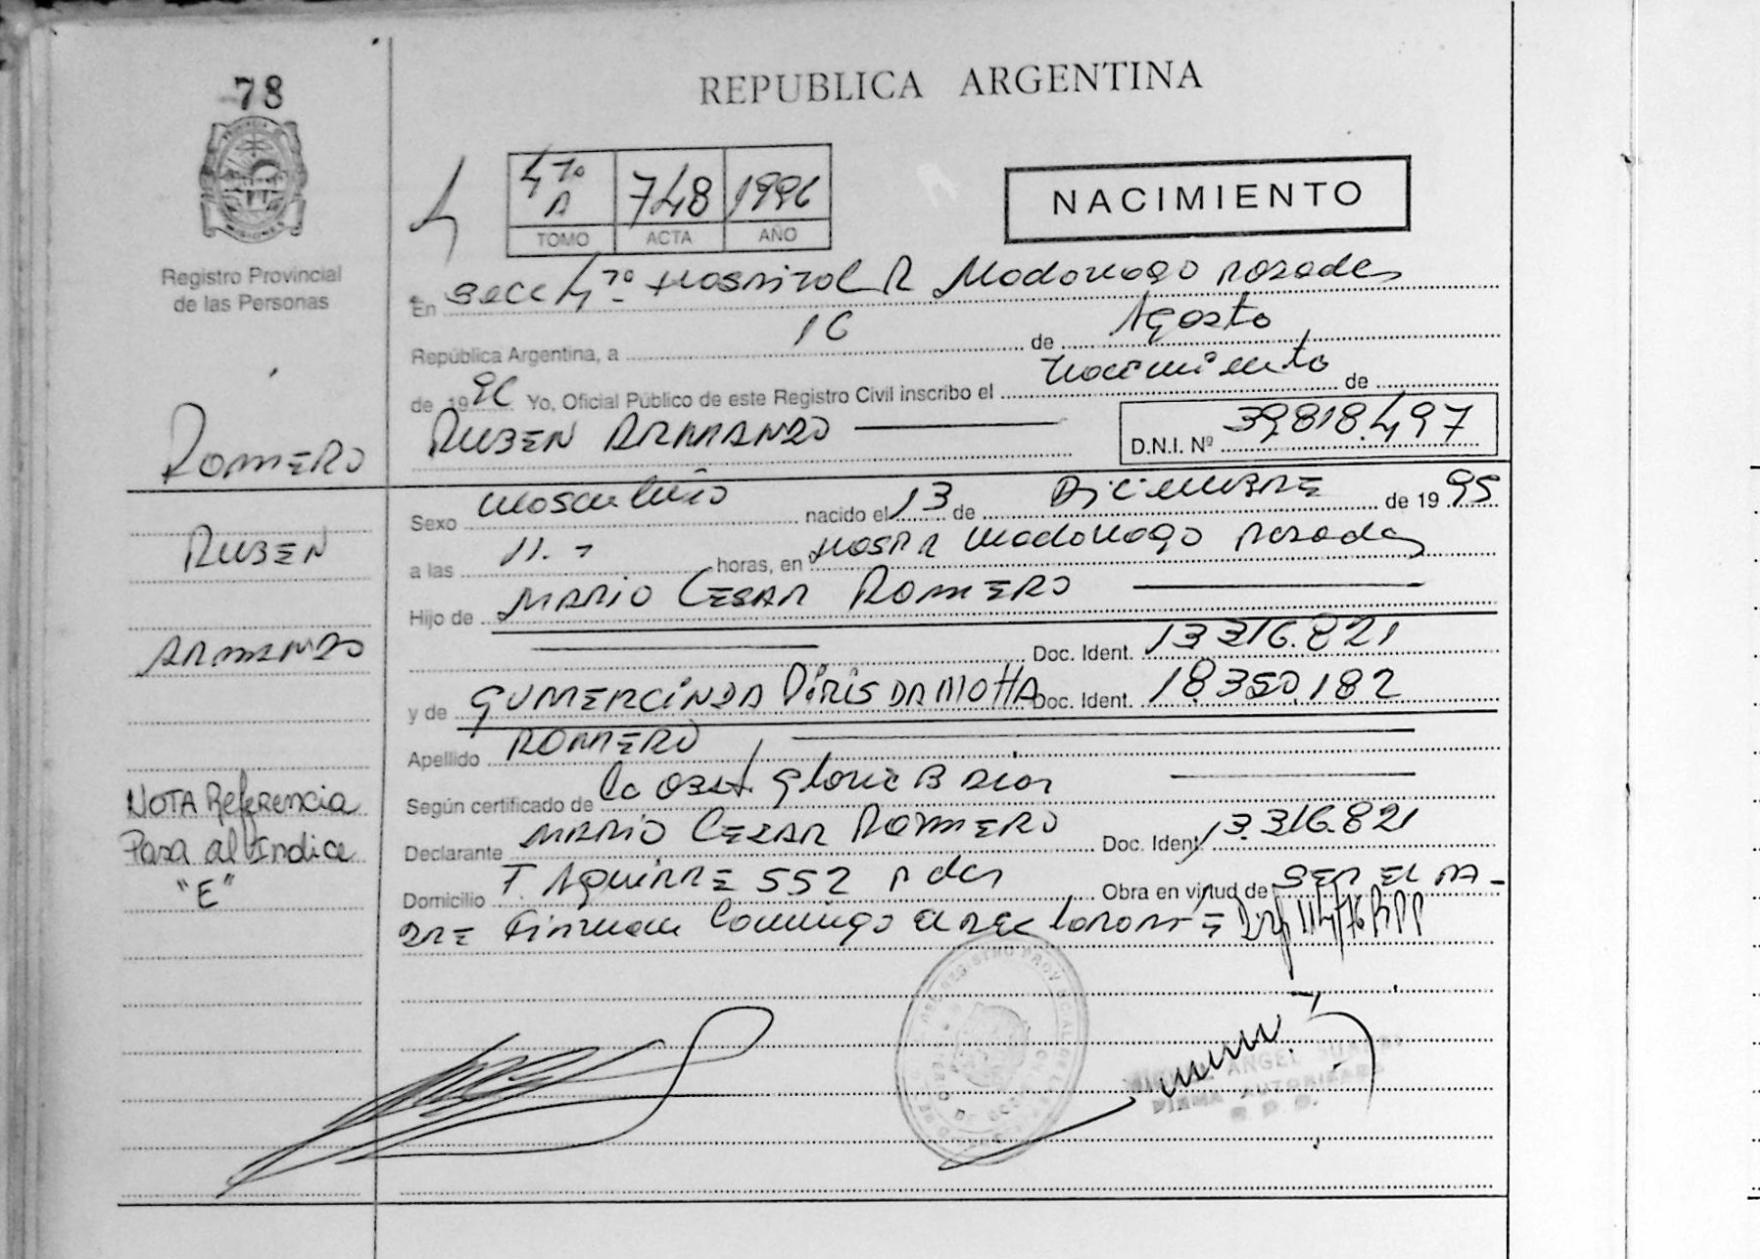 78
REPUBLICA ARGENTINA
PROVINCIA DE MISIONES
Registro Provincial
de las Personas
4
4ta A 748 1996
TOMO ACTA AÑO
NACIMIENTO
En Secc 4ta Hospital R Madariaga Posadas
República Argentina, a 16 de Agosto
de 1996 Yo, Oficial Público de este Registro Civil inscribo el nacimiento de
RUBEN ARMANDO D.N.I. Nº 39.818.497
ROMERO
RUBEN
ARMANDO
Sexo masculino nacido el 13 de Diciembre de 1995
a las 11.- horas, en Hosp R Madariaga Posadas
Hijo de MARIO CESAR ROMERO
Doc. Ident. 13.316.821
y de GUMERCINDA PIRIS DA MOTTA Doc. Ident. 18.350.182
Apellido ROMERO
Según certificado de la Obst. Gloria B
Declarante MARIO CESAR ROMERO Doc. Ident. 13.316.821
Domicilio T. AGUIRRE 552 Pdas Obra en virtud de SER EL PA-
DRE Firman Conmigo el declarante
NOTA Referencia
Pasa al Indice
"E"
MIGUEL ANGEL
FIRMA AUTORIZADA